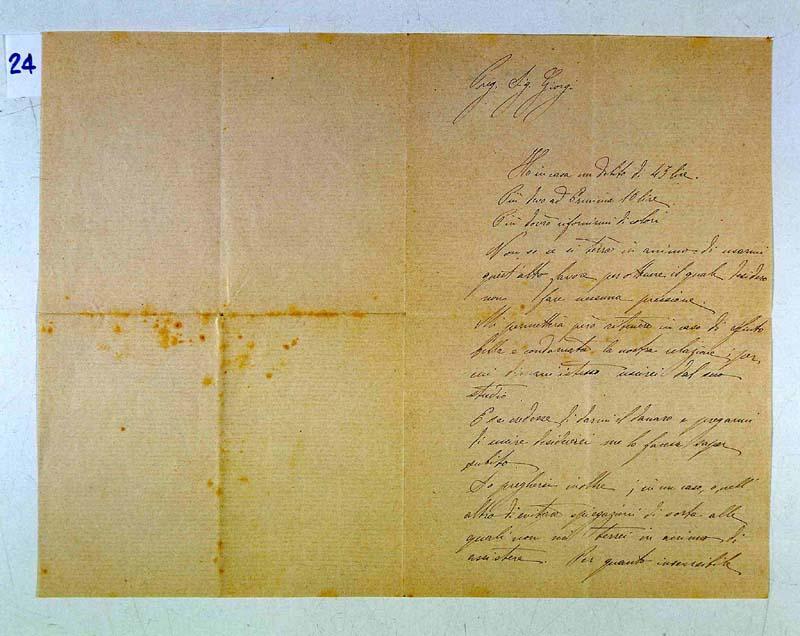 24
Preg. Sig. Giorgi
Ho in casa un debito di 43 lire.
Più devo ad Erminia 10 lire
E più dovrò rifornirmi di colori
Non so se si terrà in animo di usarmi
quest'altro favore per ottenere il quale desidero
non fare nessuna pressione.
Mi permetterà però ritenere in caso di rifiuto
bella e condannata la nostra relazione; per
cui domani istesso uscirei dal suo
studio.
E se credesse di darmi il danaro e pregarmi
di uscire desidererei me lo faccia saper
subito
La pregherei inoltre, in un caso, o nell'
altro di evitare spiegazioni di sorta alle
quali non terrei in animo di
assistere. Per quanto insensibile